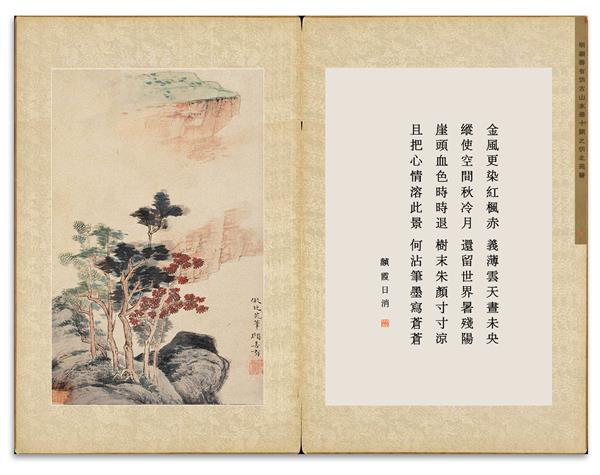 明顧善有仿古山水冊十開之仿北苑筆
金風更染紅楓赤 義薄雲天晝未央
縱使空間秋冷月 還留世界暑殘陽
崖頭血色時時退 樹末朱顏寸寸涼
且把心情溶此景 何沾筆墨寫蒼蒼
霞日消
倣北苑筆 顧善有